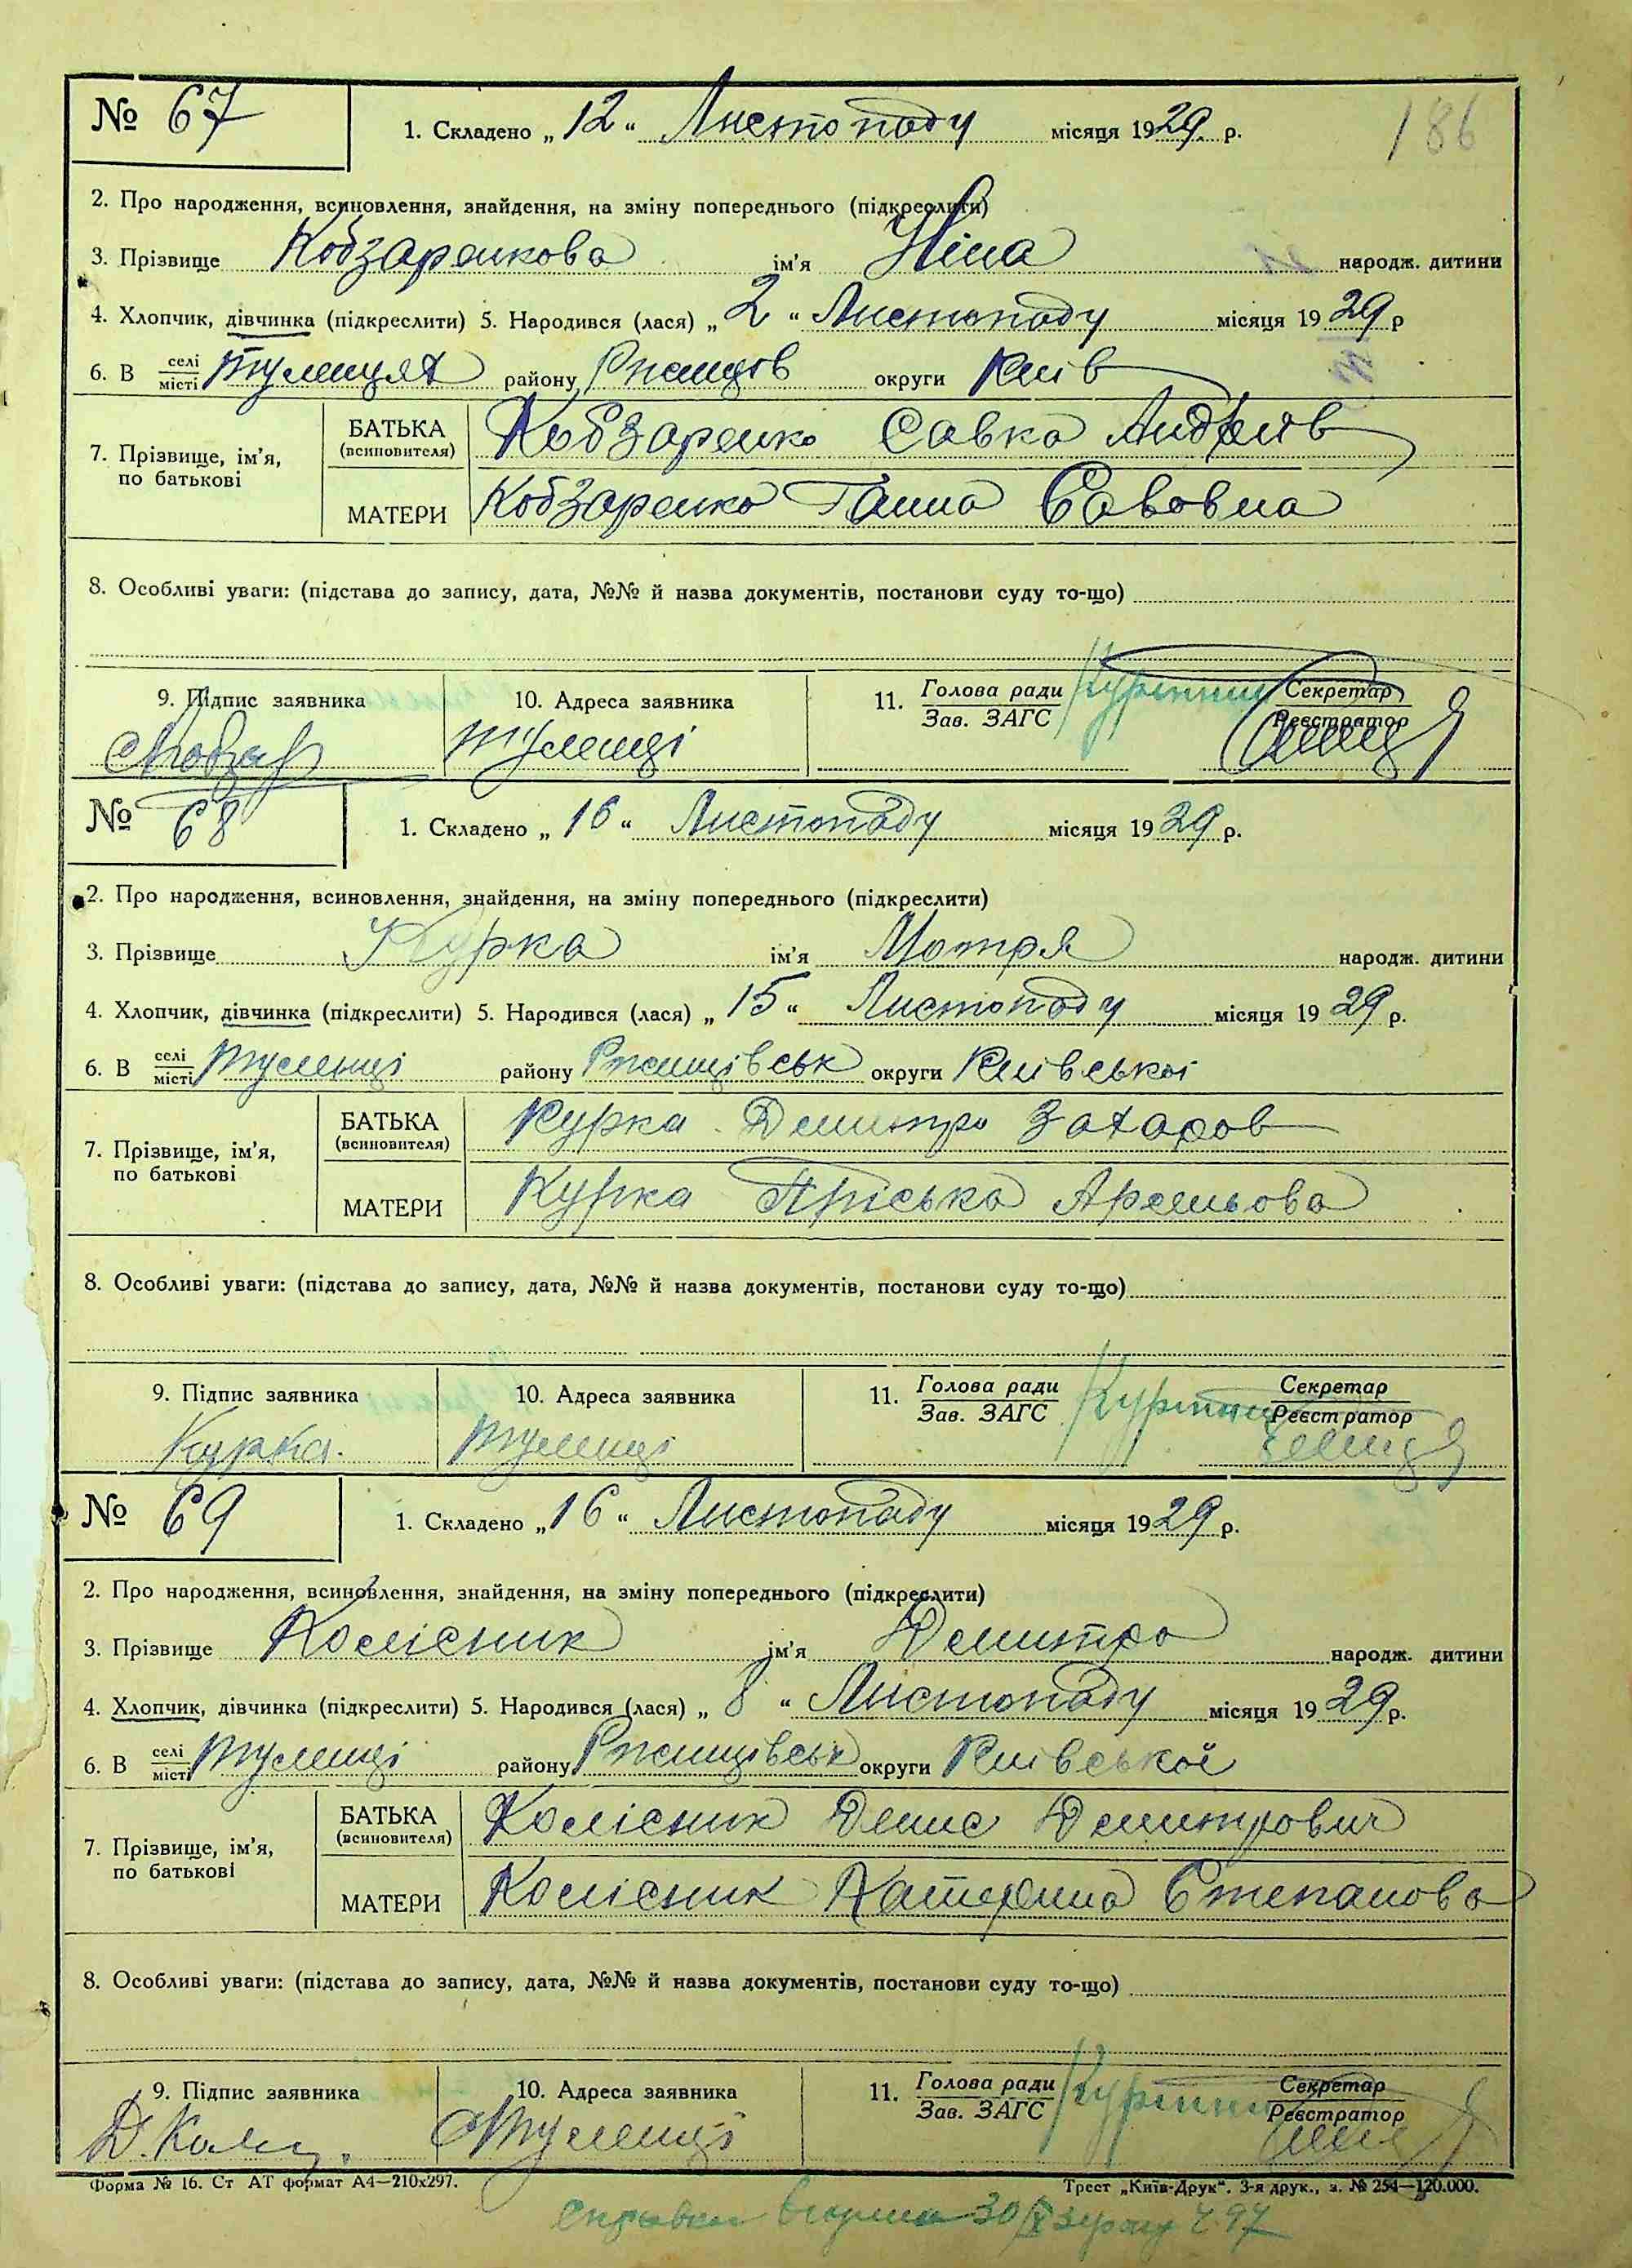 № 67
1. Складено „ 12 “ Листопаду місяця 1929. р.
186
2. Про народження, всиновлення, знайдення, на зміну попереднього (підкреслити)
3. Прізвище Кобзаренкова ім'я Ніна народж. дитини
4. Хлопчик, дівчинка (підкреслити) 5. Народився (лася) „ 2 “ Листопаду місяця 19 29 р
6. В селі місті Тулинцях району Ржищів округи Київ
7. Прізвище, ім'я, по батькові
БАТЬКА (всиновителя) Кобзаренко Савка Андріїв
МАТЕРИ Кобзаренко Ганна Савовна
8. Особливі уваги: (підстава до запису, дата, №№ й назва документів, постанови суду то-що)
9. Підпис заявника 10. Адреса заявника 11. Голова ради Зав. ЗАГС Секретар Реєстратор
Туленці
№ 68
1. Складено „ 16 “ Листопаду місяця 19 29 р.
2. Про народження, всиновлення, знайдення, на зміну попереднього (підкреслити)
3. Прізвище Курка ім'я Мотря народж. дитини
4. Хлопчик, дівчинка (підкреслити) 5. Народився (лася) „ 15 “ Листопаду місяця 19 29 р.
6. В селі місті Туленці району Ржищівськ округи Київської
7. Прізвище, ім'я, по батькові
БАТЬКА (всиновителя) Курка Демитро Захаров
МАТЕРИ Курка Пріська Арсеньова
8. Особливі уваги: (підстава до запису, дата, №№ й назва документів, постанови суду то-що)
9. Підпис заявника 10. Адреса заявника 11. Голова ради Зав. ЗАГС Секретар Реєстратор
Курка. Туленці
№ 69
1. Складено „ 16 “ Листопаду місяця 1929 р.
2. Про народження, всиновлення, знайдення, на зміну попереднього (підкреслити)
3. Прізвище Колісник ім'я Демитро народж. дитини
4. Хлопчик, дівчинка (підкреслити) 5. Народився (лася) „ 8 “ Листопаду місяця 19 29 р.
6. В селі місті Туленці району Ржищівськ округи Київської
7. Прізвище, ім'я, по батькові
БАТЬКА (всиновителя) Колісник Денис Демитрович
МАТЕРИ Колісник Катерина Степанова
8. Особливі уваги: (підстава до запису, дата, №№ й назва документів, постанови суду то-що)
9. Підпис заявника 10. Адреса заявника 11. Голова ради Зав. ЗАГС Секретар Реєстратор
Туленці
Форма № 16. Ст АТ формат А4—210х297. Трест „Київ-Друк“. 3-я друк., з. № 254—120.000.